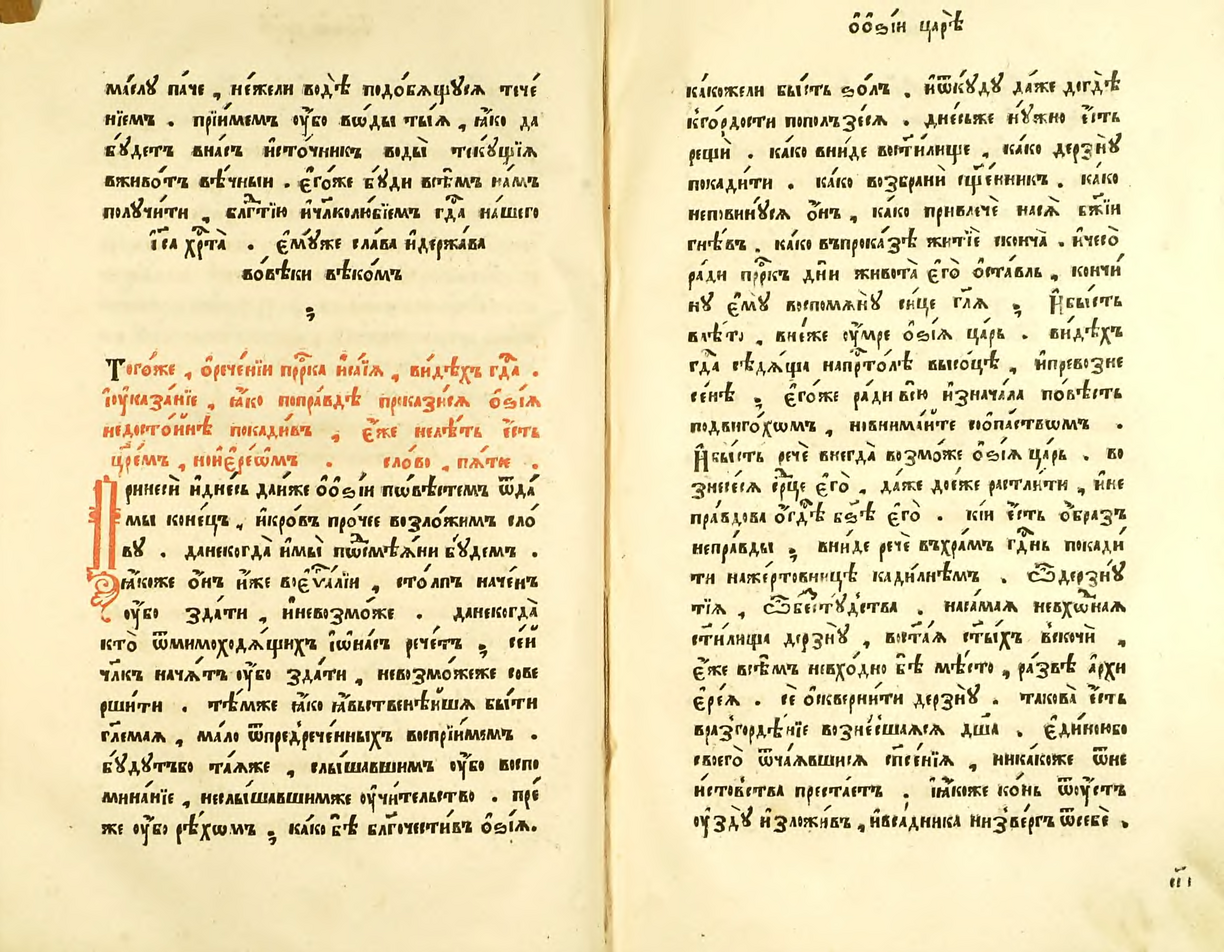 ма́слꙋ па́че , не́жели водѣ̀ подо́бѧщꙋсѧ тече́
нїемъ . прїи́мемъ оу҆́бо вѡ́ды ты́ѧ , ꙗ҆́ко да
бꙋ́детъ вна́съ и҆сто́чникъ воды̀ текꙋ́щїѧ
вживо́тъ вѣ́чныи . є҆го́же бꙋ́ди всѣ́мъ на́мъ
полꙋчи́ти , блг҃тїю и҆чл҃колю́бїемъ гд҃а на́шего
і҆с҃а хр҃та̀ . є҆мꙋ́же сла́ва и҆держа́ва
во́вѣки вѣко́мъ
Того́же , ѡ҆рече́нїи пр҇рка и҆са́їѧ , ви́дѣхъ гд҃а .
і҆оу҆каза́нїе , ꙗ҆́ко попра́вдѣ прокази́сѧ ѻ҆ѕі́ѧ
недосто́йнѣ покади́въ , є҆́же нелѣ́ть є҆́сть
цр҃е́мъ , нои҆є҆ре́ѡмъ . сло́во , пѧ́тое .
Принесѝ и҆дне́сь да́ниже ѻ҆ѻ҆ѕі́и по́вѣстемъ ѿда
мы̀ коне́цъ , и҆кро́въ про́чее возло́жимъ сло́
вꙋ . данекогда̀ и҆мы̀ пѡсмѣ́ѧни бꙋ́демъ .
ꙗ҆́коже ѻ҆́нъ и҆́же воеѵⷢ҇а́лїи , сто́лпъ наче́нъ
оу҆́бо зда́ти , и҆невозмо́же . данекогда̀
кто̀ ѿмимоходѧ́щихъ і҆ѡ҆на́съ рече́тъ ; се́й
чл҃къ нача́тъ оу҆́бо зда́ти , невозмо́жеже сове
рши́ти . тѣ́мже ꙗ҆́ко ꙗ҆́вственнѣйша бы́ти
гл҃емаѧ , ма́ло ѿпредрече́нныхъ воспрїи́мемъ .
бꙋ́дꙋтъбо та́ѧже , слы́шавшимъ оу҆́бо воспо
мина́нїе , неслы́шавшимже оу҆чи́тельство . пре́
же оу҆́бо рѣ́хѡмъ ; ка́ко бѣ̀ благочести́въ ѻ҆ѕі́ѧ.
ѻ҆ѻ҆ѕі́и царѣ̀
ка́кожели бы́сть ѕо́лъ . и҆ѿкꙋ́дꙋ да́же догдѣ̀
кго́рдости поползе́сѧ . дне́сьже нꙋ́жно є҆́сть
рещѝ . ка́ко вни́де вости́лище , ка́ко дерзнꙋ̀
покади́ти . ка́ко возбранѝ сщ҃е́нникъ . ка́ко
неповинꙋ́сѧ ѻ҆́нъ , ка́ко привлечѐ насѧ̀ бж҃їи
гнѣ́въ . ка́ко въпрока́зѣ житїѐ сконча̀ . и҆чесо̀
ра́ди пр҇ркъ дни̑ живота̀ є҆го̀ ѻ҆ста́вль , кончи́
нꙋ є҆мꙋ̀ воспомѧнꙋ̀ си́це гл҃ѧ ; И҆бы́сть
влѣ́то , вне́же оу҆́мре ѻ҆ѕі́ѧ ца́рь . ви́дѣхъ
гд҃а сѣдѧ́ща напр҇то́лѣ высо́цѣ , и҆превозне
се́нѣ ; є҆го́же ра́ди всю̀ и҆знача́ла по́вѣсть
подвиго́хѡмъ , новнима́йте сопа́ствомъ .
И҆бы́сть речѐ внегда̀ возмо́же ѻ҆ѕі́ѧ ца́рь . во
знесе́сѧ ср҃це є҆го̀ , да́же до́еже растли́ти , и҆не
пра́вдова ѻ҆гд҃ѣ бз҃ѣ є҆го̀ . кі́и є҆́сть ѻ҆́бразъ
непра́вды ; вни́де речѐ въхра́мъ гд҇нь покади́
ти наже́ртовницѣ кади́лнѣмъ . Ѽдерзнꙋ́
тїѧ , ѽбестꙋ́дства . наса́маѧ невхѡ́днаѧ
сти́лища дерзнꙋ̀ , во ст҃а́ѧ ст҃ы́хъ вскочѝ ,
є҆́же всѣ́мъ невхо́дно бѣ̀ мѣ́сто , ра́звѣ а҆рхи
є҆ре́ѧ . сѐ ѻ҆скверни́ти дерзнꙋ̀ . такова̀ є҆́сть
вразгордѣ́нїе возне́сшаѧсѧ дш҃а . є҆ди́нобо
своего̀ ѿча́ѧвшисѧ сп҃се́нїѧ , ника́коже ѿне
и́стовства преста́етъ . і҆ꙗ҆́коже ко́нь ѿоу҆́стъ
оу҆здꙋ̀ и҆зложи́въ , и҆вса́дника низве́ргъ ѿсебѐ ,